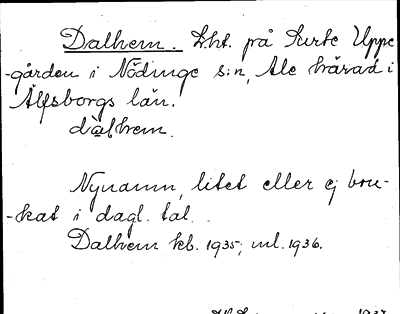 Dalhem. Lht. på Surte Uppe
-gården i Nödinge s:n, Ale härad i
Älfsborgs län.
dalhem.
Nynamn, litet eller ej bru-
-kat i dagl. tal.
Dalhem kb. 1935; ml. 1936.